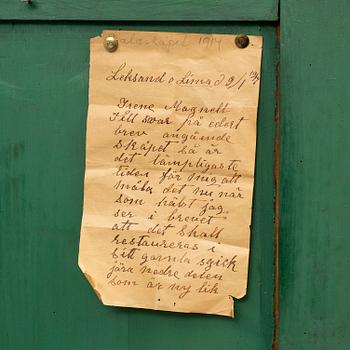 Dalaskåpet 1914
Leksand o Limad 9/1
Irene Magnett
Till svar på edert
brev angående
Skåpet så är
det lämpligaste
tiden för mig att
måla det nu när
som häbt jag
ser i brevet
att det skall
restaureras i
sitt gamla skick
jära nedre delen
som är ny lik